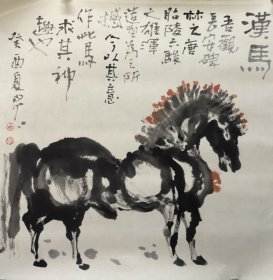 漢馬
吾觀
長安碑
林之唐
昭陵六駿
之雄渾
造型為之震
撼今以其意
作此馬
求其神
趣也
癸酉夏